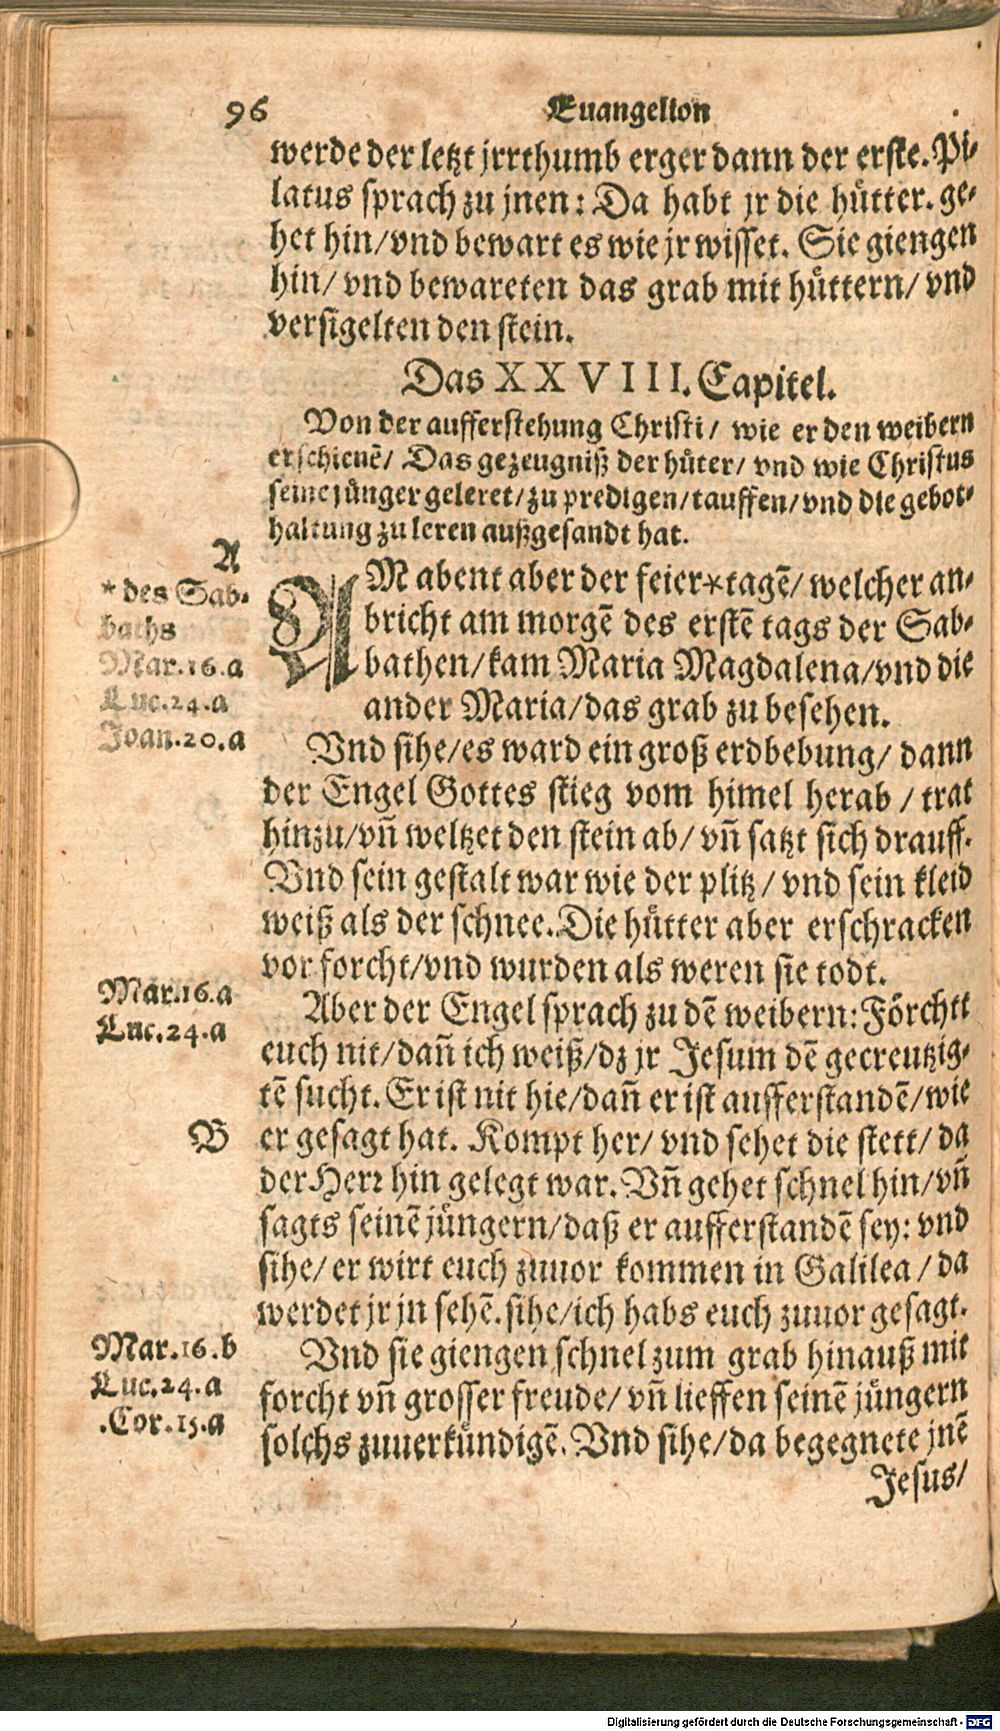 96 Euangelion
werde der letzt jrrthumb erger dann der erste. Pi-
latus sprach zu jnen: Da habt jr die hütter. ge-
het hin/ vnd bewart es wie jr wisset. Sie giengen
hin/ vnd bewareten das grab mit hüttern/ vnd
versigelten den stein.
Das XXVIII. Capitel.
Von der aufferstehung Christi/ wie er den weibern
erschienē/ Das gezeugniß der hüter/ vnd wie Christus
seine jünger geleret/ zu predigen/ tauffen/ vnd die gebot-
haltung zu leren außgesandt hat.
A
* des Sab-
baths
Mar.16.a
Luc.24.a
Joan.20.a
AM abent aber der feier*tagē/ welcher an-
bricht am morgē des erstē tags der Sab-
bathen/ kam Maria Magdalena/ vnd die
ander Maria/ das grab zu besehen.
Vnd sihe/ es ward ein groß erdbebung/ dann
der Engel Gottes stieg vom himel herab / trat
hinzu/ vñ weltzet den stein ab/ vñ satzt sich drauff.
Vnd sein gestalt war wie der plitz / vnd sein kleid
weiß als der schnee. Die hütter aber erschracken
vor forcht/ vnd wurden als weren sie todt.
Mar.16.a
Luc.24.a
Aber der Engel sprach zu dē weibern: Förchtt
euch nit/ dañ ich weiß/ dz jr Jesum dē gecreutzig-
tē sucht. Er ist nit hie/ dañ er ist aufferstandē/ wie
B
er gesagt hat. Kompt her/ vnd sehet die stett/ da
der Herr hin gelegt war. Vñ gehet schnel hin/ vñ
sagts seinē jüngern/ daß er aufferstandē sey: vnd
sihe/ er wirt euch zuuor kommen in Galilea / da
werdet jr jn sehē. sihe/ ich habs euch zuuor gesagt.
Mar.16.b
Luc.24.a
.Cor.15.a
Vnd sie giengen schnel zum grab hinauß mit
forcht vñ grosser freude/ vñ lieffen seinē jüngern
solchs zuuerkündigē. Vnd sihe/ da begegnete jnē
Jesus/
Digitalisierung gefördert durch die Deutsche Forschungsgemeinschaft - DFG